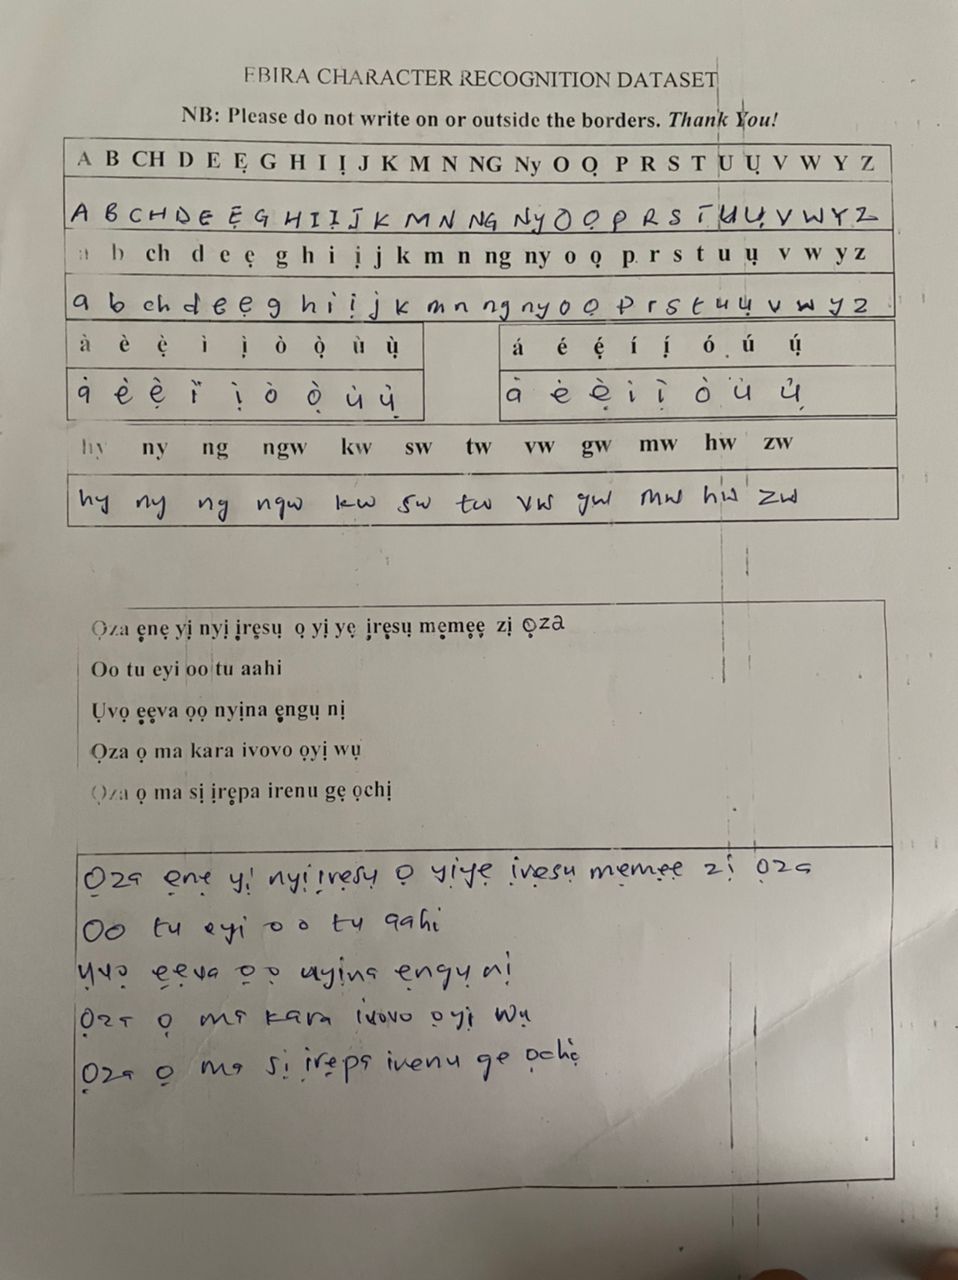 EBIRA CHARACTER RECOGNITION DATASET
NB: Please do not write on or outside the borders. Thank You!
A B CH D E Ẹ G H I Ị J K M N NG Ny O Ọ P R S T U Ụ V W Y Z
A B C H D E Ẹ G H I Ị J K M N NG Ny O Ọ P R S T U Ụ V W Y Z
a b ch d e ẹ g h i ị j k m n ng ny o ọ p r s t u ụ v w y z
a b ch d e ẹ g h i ị j k m n ng ny o ọ p r s t u ụ v w y z
à è ẹ̀ ì ị̀ ò ọ̀ ù ụ̀ á é ẹ́ í ị́ ó ú ụ́
à è ẹ̀ ï ị̀ ò ọ̀ ù ụ̀ à è ẹ̀ ì ị̀ ò ù ụ̉
hy ny ng ngw kw sw tw vw gw mw hw zw
hy ny ng ngw kw sw tw vw gw mw hw zw
Ọza ẹnẹ yị nyị ịrẹsụ ọ yị yẹ ịrẹsụ mẹmẹẹ zị ọza
Oo tu eyi oo tu aahi
Ụvọ ẹẹva ọọ nyịna ẹngụ nị
Ọza ọ ma kara ivovo ọyị wụ
Ọza ọ ma sị ịrẹpa irenu gẹ ọchị
Ọza ẹnẹ yị nyị ịrẹsụ ọ yịyẹ ịrẹsụ mẹmẹẹ zị ọza
Oo tu eyi oo tu aahi
Ụvọ ẹẹva ọọ nyịna ẹngụ nị
Ọza ọ ma kara ivovo ọyị wụ
Ọza ọ ma sị ịrẹpa irenu ge ọchị